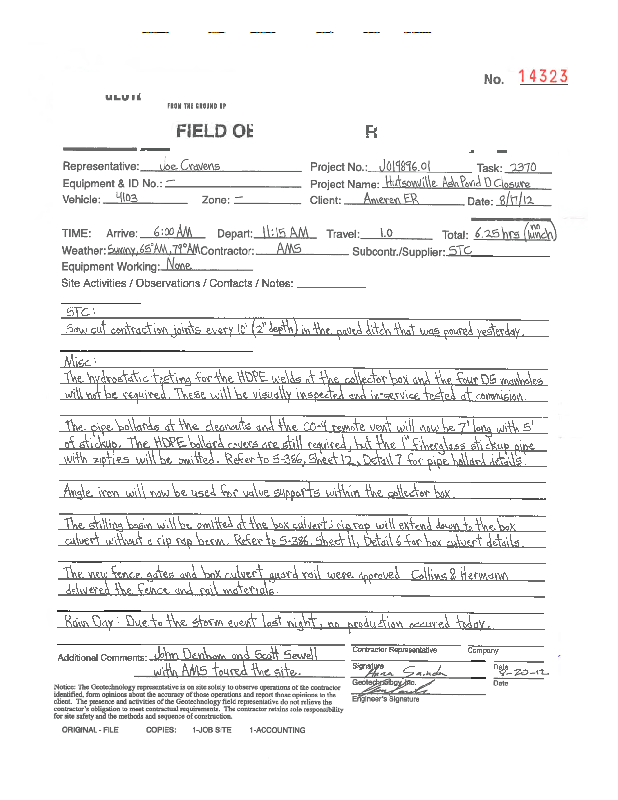 No. 14323
FROM THE GROUND UP
FIELD OB R
Representative: Joe Cravens Project No.: J019896.01 Task: 2370
Equipment & ID No.: – Project Name: Hutsonville Ash Pond D Closure
Vehicle: 4103 Zone: – Client: Ameren ER Date: 8/17/12
TIME: Arrive: 6:00 AM Depart: 11:15 AM Travel: 1.0 Total: 6.25 hrs (no lunch)
Weather: Sunny, 65°AM, 79°AM Contractor: AMS Subcontr./Supplier: STC
Equipment Working: None
Site Activities / Observations / Contacts / Notes:
STC:
Saw cut contraction joints every 10' (2" depth) in the paved ditch that was poured yesterday.
Misc:
The hydrostatic testing for the HDPE welds at the collector box and the four DS manholes
will not be required. These will be visually inspected and in-service tested at commision.
The pipe bollards at the cleanouts and the CO-4 remote vent will now be 7' long with 5'
of stickup. The HDPE bollard covers are still required, but the 1" fiberglass stickup pipe
with zipties will be omitted. Refer to S-386, Sheet 12, Detail 7 for pipe bollard details.
Angle iron will now be used for valve supports within the collector box.
The stilling basin will be omitted at the box culvert; rip rap will extend down to the box
culvert without a rip rap berm. Refer to S-386, Sheet 11, Detail 6 for box culvert details.
The new fence gates and box culvert guard rail were approved Collins & Hermann
delivered the fence and rail materials.
Rain Day: Due to the storm event last night, no production occured today.
Additional Comments: John Denham and Scott Sewell
with AMS toured the site.
Contractor Representative Company
Signature Date
8-20-12
Geotechnology, Inc. Date
Engineer's Signature
Notice: The Geotechnology representative is on site solely to observe operations of the contractor
identified, form opinions about the accuracy of those operations and report those opinions to the
client. The presence and activities of the Geotechnology field representative do not relieve the
contractor's obligation to meet contractual requirements. The contractor retains sole responsibility
for site safety and the methods and sequence of construction.
ORIGINAL - FILE COPIES: 1-JOB SITE 1-ACCOUNTING